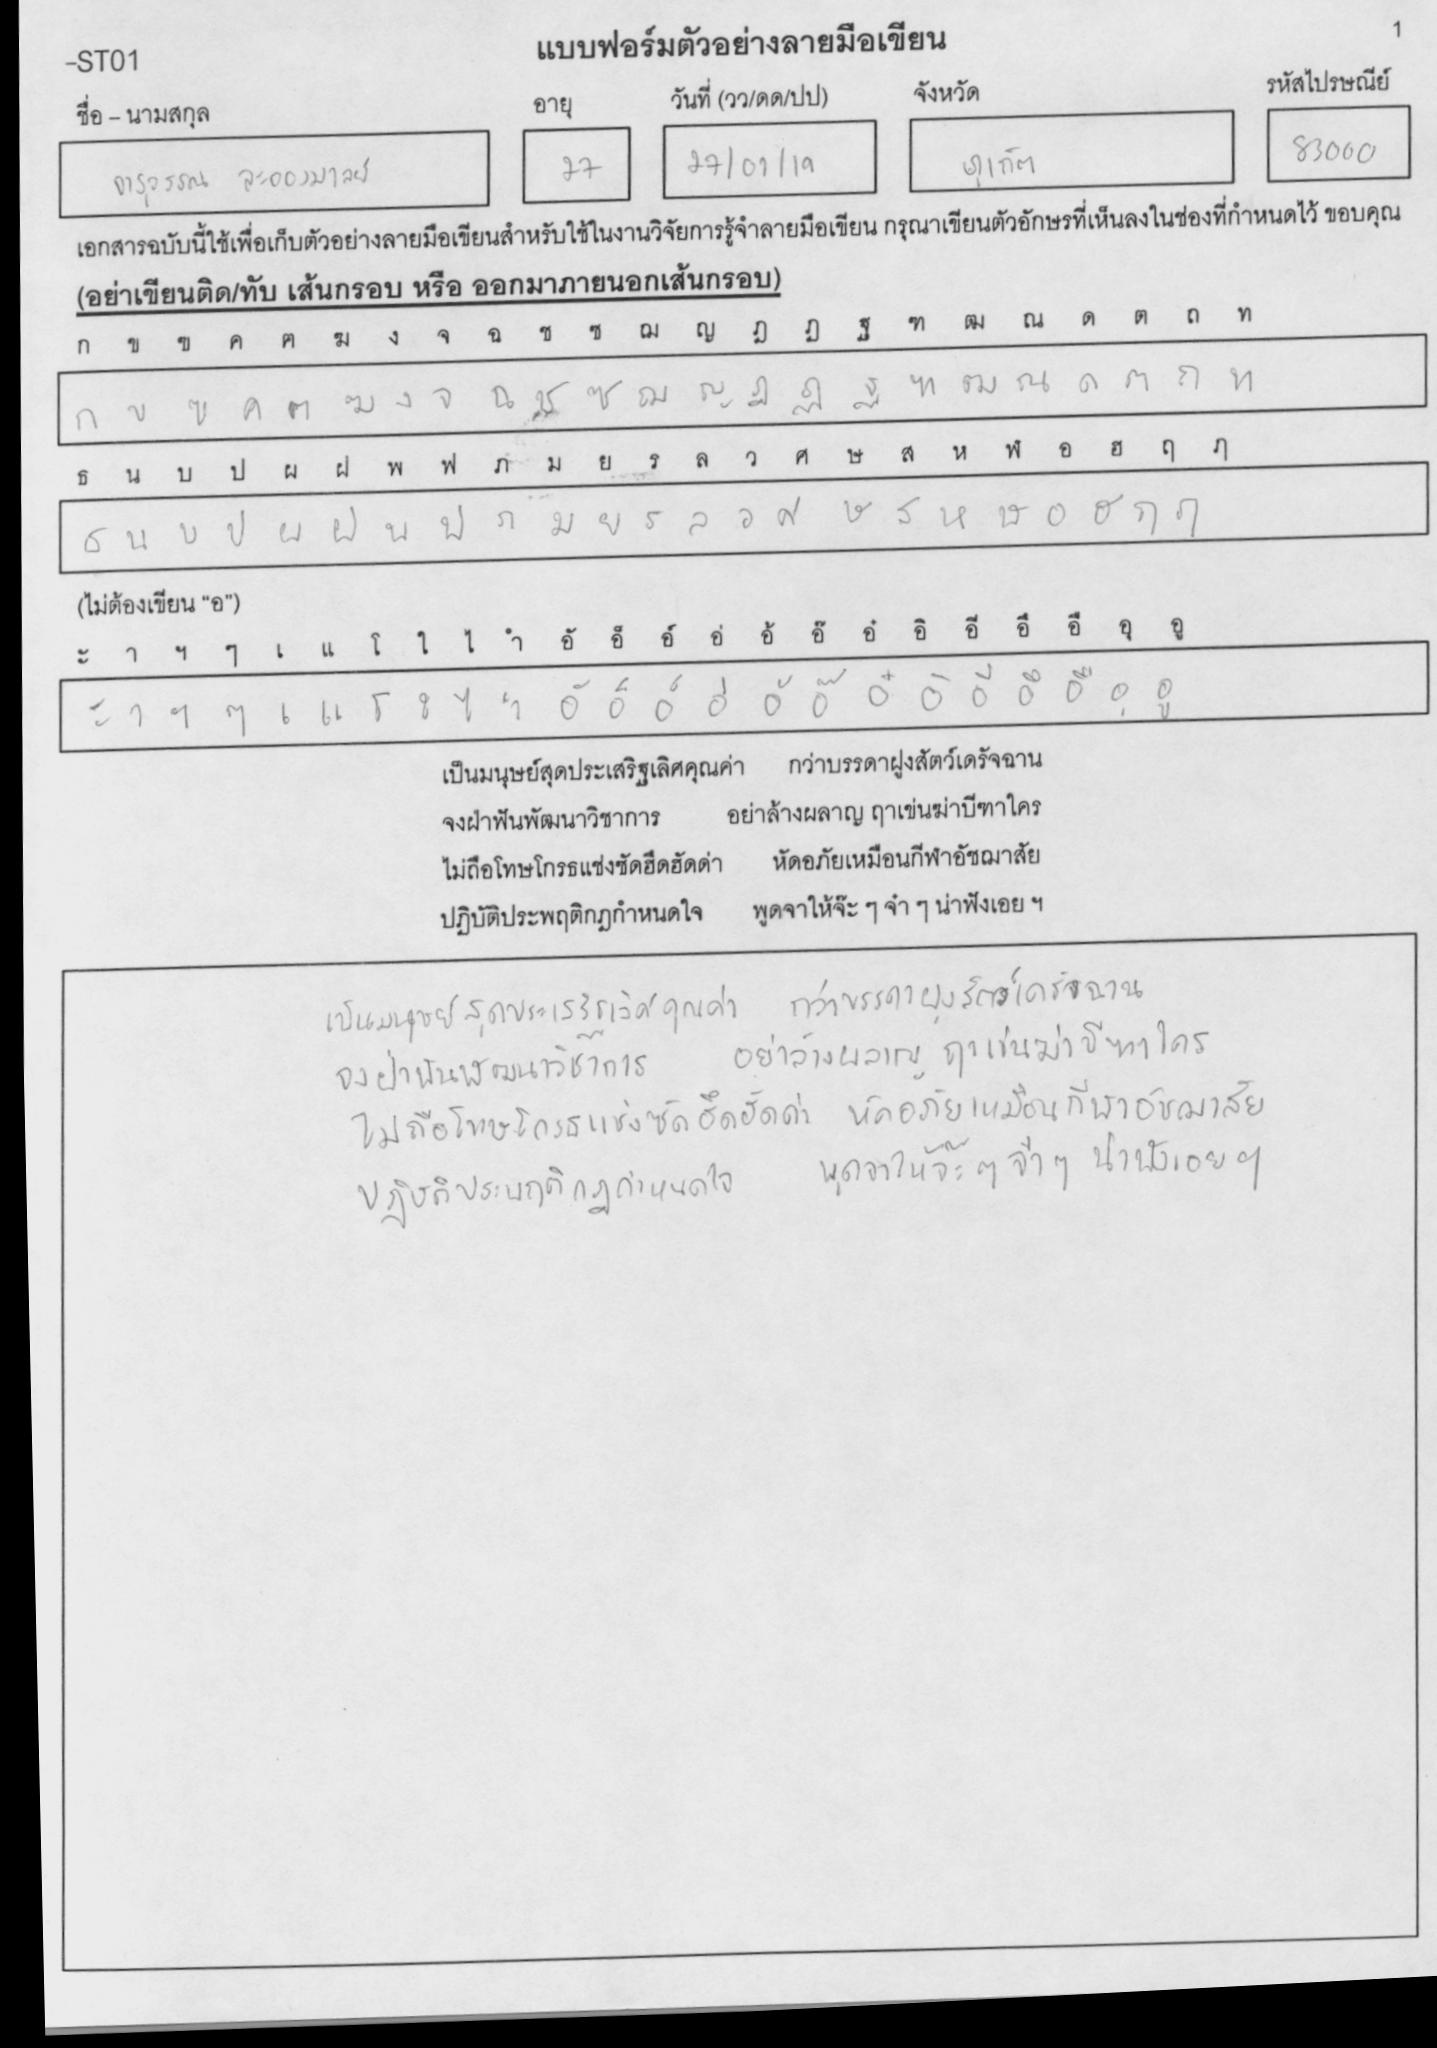 -ST01
แบบฟอร์มตัวอย่างลายมือเขียน
1
ชื่อ – นามสกุล อายุ วันที่ (วว/ดด/ปป) จังหวัด รหัสไปรษณีย์
จารุวรรณ ละอองมาลย์ 27 27/01/19 ภูเก็ต 83000
เอกสารฉบับนี้ใช้เพื่อเก็บตัวอย่างลายมือเขียนสำหรับใช้ในงานวิจัยการรู้จำลายมือเขียน กรุณาเขียนตัวอักษรที่เห็นลงในช่องที่กำหนดไว้ ขอบคุณ
(อย่าเขียนติด/ทับ เส้นกรอบ หรือ ออกมาภายนอกเส้นกรอบ)
ก ข ฃ ค ฅ ฆ ง จ ฉ ช ซ ฌ ญ ฎ ฏ ฐ ฑ ฒ ณ ด ต ถ ท
ก ข ฃ ค ฅ ฆ ง จ ฉ ช ซ ฌ ญ ฎ ฏ ฐ ฑ ฒ ณ ด ต ถ ท
ธ น บ ป ผ ฝ พ ฟ ภ ม ย ร ล ว ศ ษ ส ห ฬ อ ฮ ฤ ฦ
ธ น บ ป ผ ฝ พ ฟ ภ ม ย ร ล ว ศ ษ ส ห ฬ อ ฮ ฤ ฦ
(ไม่ต้องเขียน “อ”)
ะ า ฯ ๆ เ แ โ ใ ไ ำ อั อ็ อ์ อ่ อ้ อ๊ อ๋ อิ อี อึ อื อุ อู
ะ า ฯ ๆ เ แ โ ใ ไ ำ อั อ็ อ์ อ่ อ้ อ๊ อ๋ อิ อี อึ อื อุ อู
เป็นมนุษย์สุดประเสริฐเลิศคุณค่า กว่าบรรดาฝูงสัตว์เดรัจฉาน
จงฝ่าฟันพัฒนาวิชาการ อย่าล้างผลาญ ฤาเข่นฆ่าบีฑาใคร
ไม่ถือโทษโกรธแช่งซัดฮึดฮัดด่า หัดอภัยเหมือนกีฬาอัชฌาสัย
ปฏิบัติประพฤติกฎกำหนดใจ พูดจาให้จ๊ะ ๆ จ๋า ๆ น่าฟังเอย ฯ
เป็นมนุษย์สุดประเสริฐเลิศคุณค่า กว่าบรรดาฝูงสัตว์เดรัจฉาน
จงฝ่าฟันพัฒนาวิชาการ อย่าล้างผลาญ ฤาเข่นฆ่าบีฑาใคร
ไม่ถือโทษโกรธแช่งซัดฮึดฮัดด่า หัดอภัยเหมือนกีฬาอัชฌาสัย
ปฏิบัติประพฤติกฎกำหนดใจ พูดจาให้จ๊ะ ๆ จ๋า ๆ น่าฟังเอย ฯ